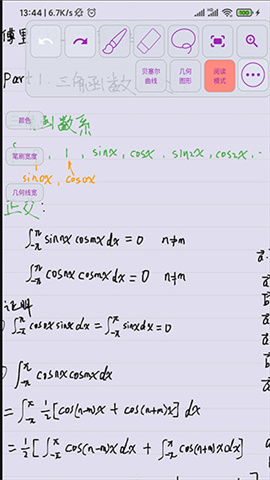 13:44 | 6.7K/s
100
Part 1. 三角函数
贝塞尔曲线
几何图形
阅读模式
颜色
函数系
笔刷宽度
, 1, sinx, cosx, sin2x, cos2x, ..
sin0x, cos0x
几何线宽
正交:
∫_{-π}^{π} sinnx cosmx dx = 0 n≠m
∫_{-π}^{π} cosnx cosmx dx = 0 n≠m
证明
∫_{-π}^{π} cos0x sinx dx = ∫_{-π}^{π} sinx dx = 0
∫_{-π}^{π} cosnx cosmx dx
= ∫_{-π}^{π} 1/2 [cos(n-m)x + cos(n+m)x] dx
= 1/2 [∫_{-π}^{π} cos(n-m)x dx + ∫_{-π}^{π} cos(n+m)x dx]